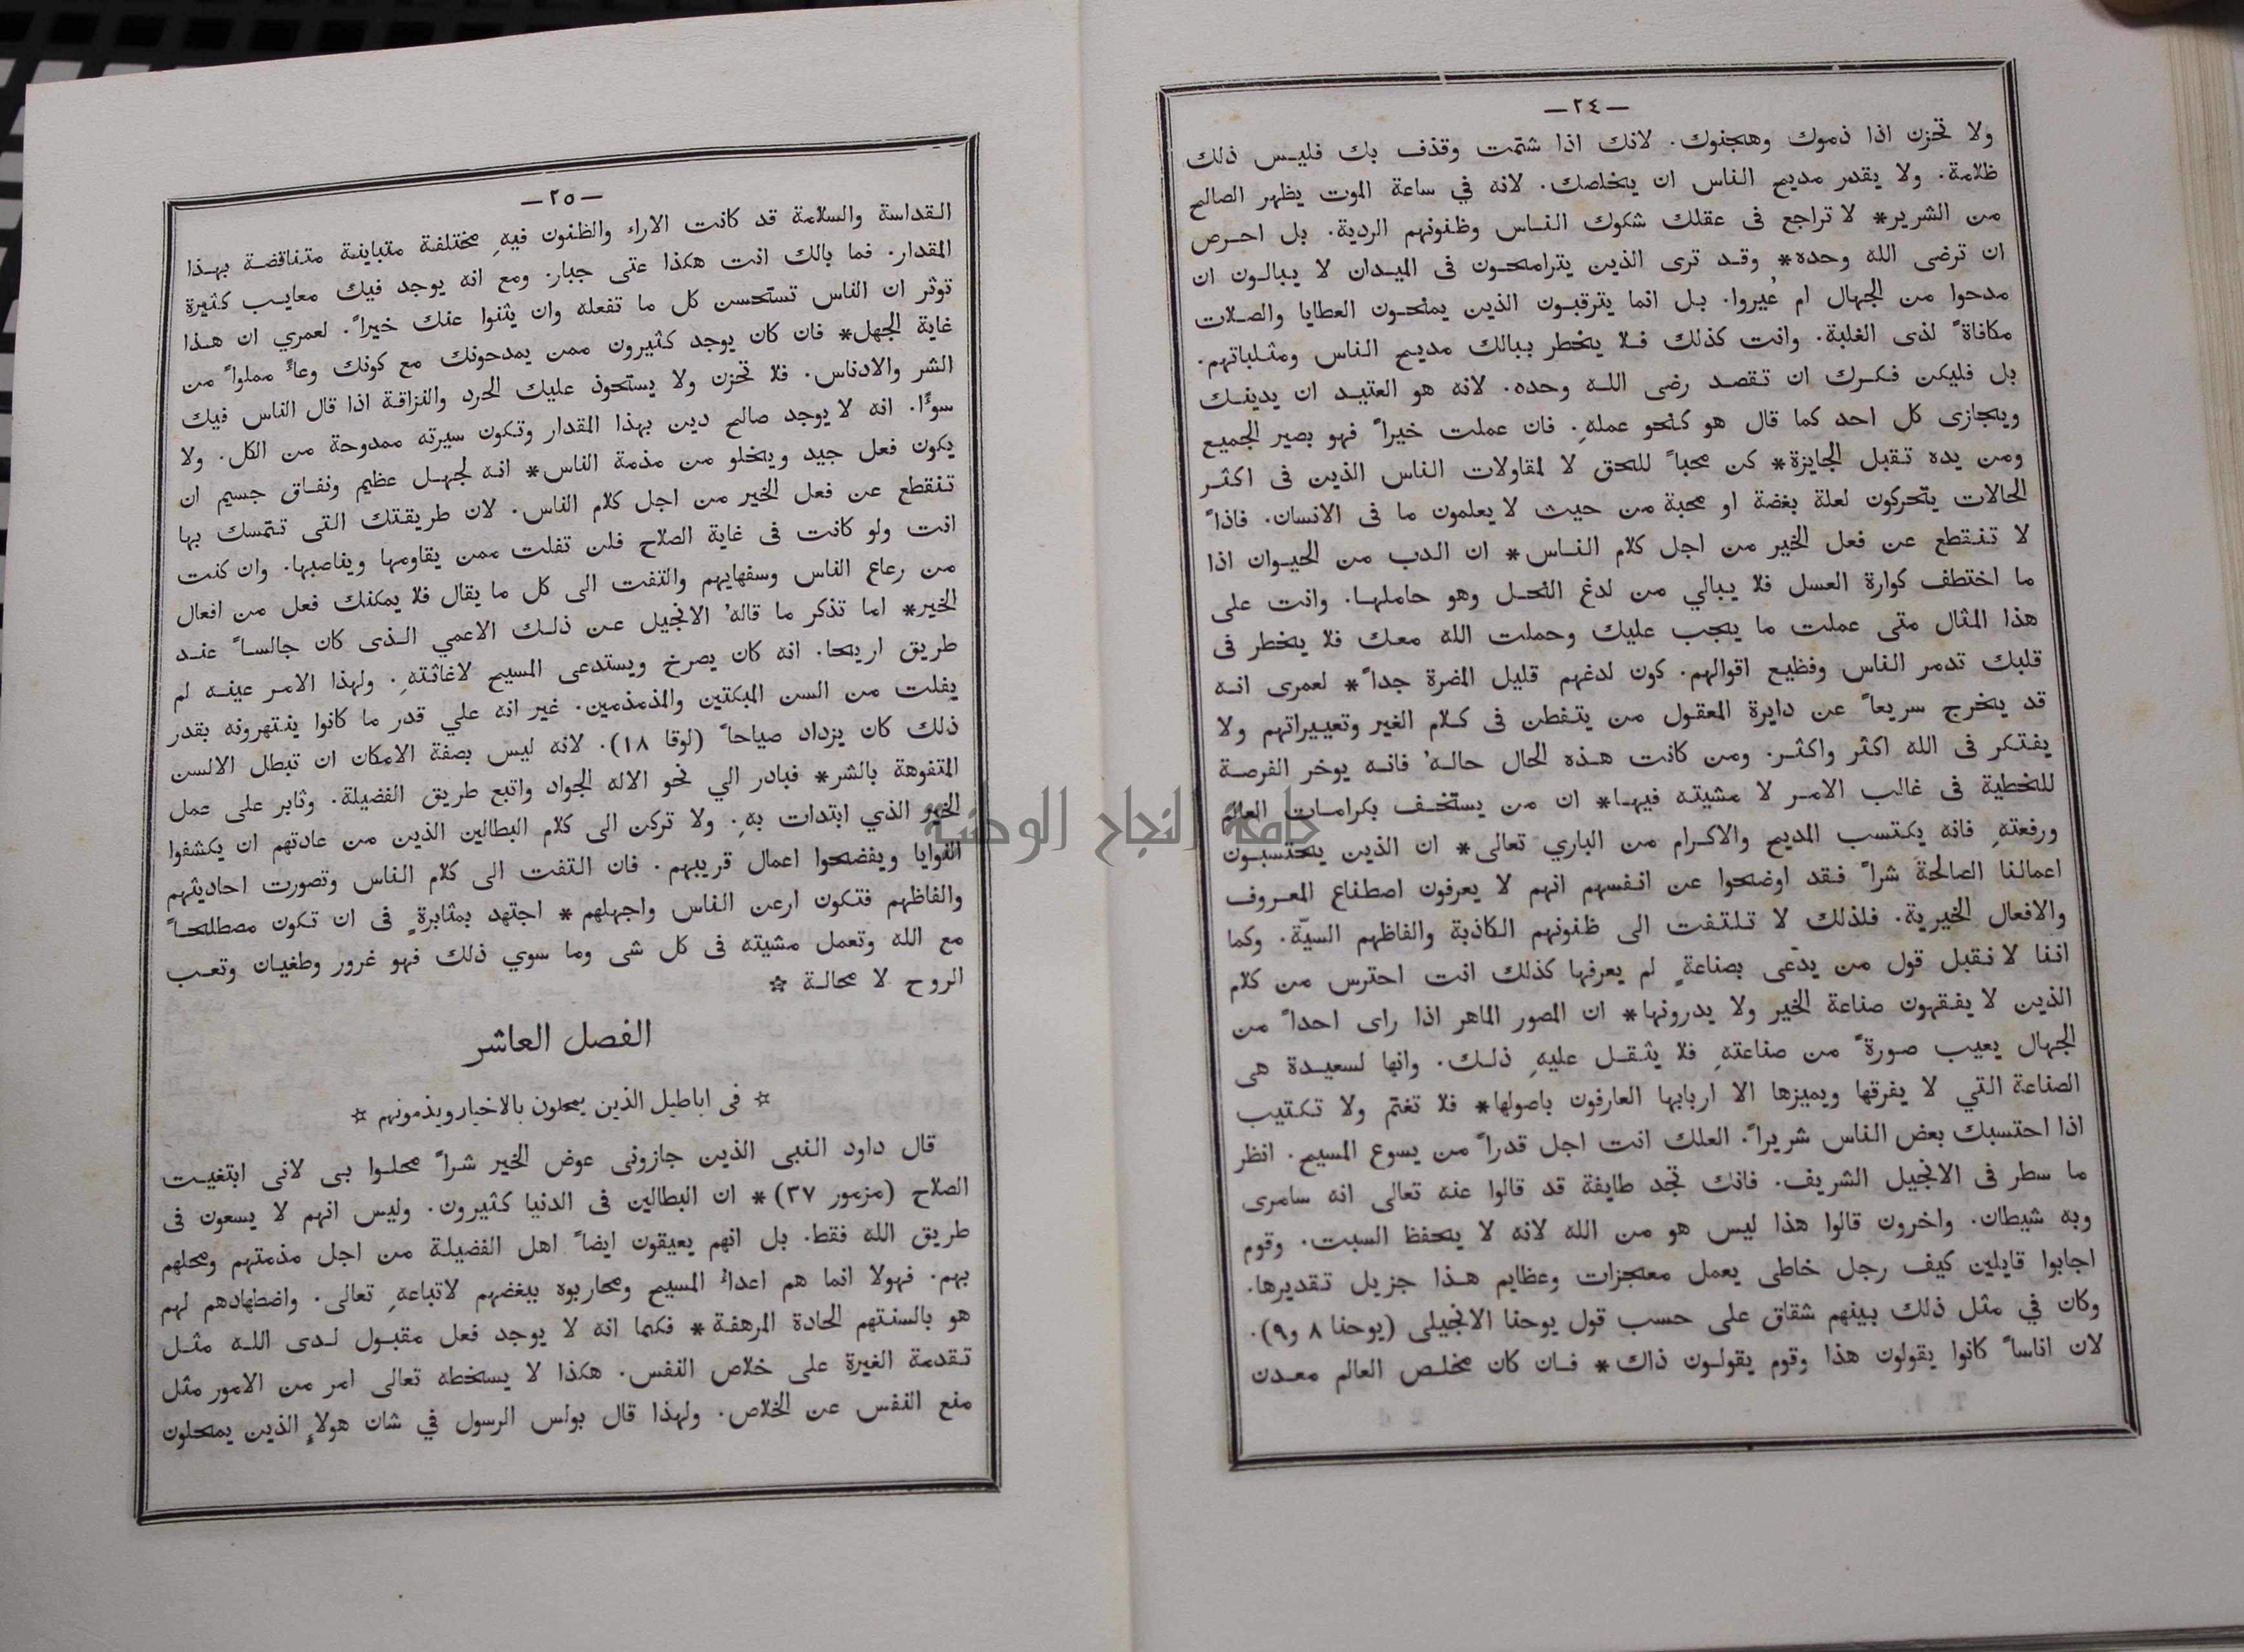 —٢٤—
ولا تحزن اذا ذموك وهجنوك. لانك اذا شتمت وقذف بك فليس ذلك
ظلامة. ولا يقدر مديح الناس ان يخلصك. لانه في ساعة الموت يظهر الصالح
من الشرير* لا تراجع فى عقلك شكوك الناس وظنونهم الردية. بل احرص
ان ترضى الله وحده* وقد ترى الذين يترامحون فى الميدان لا يبالون ان
مدحوا من الجهال ام عُيروا. بل انما يترقبون الذين يمنحون العطايا والصلات
مكافاةً لذى الغلبة. وانت كذلك فلا يخطر ببالك مديح الناس ومثلباتهم.
بل فليكن فكرك ان تقصد رضى الله وحده. لانه هو العتيد ان يدينك
ويجازى كل احد كما قال هو كنحو عملهِ. فان عملت خيراً فهو بصير الجميع
ومن يده تقبل الجايزة* كن محباً للحق لا لمقاولات الناس الذين فى اكثر
الحالات يتحركون لعلة بغضة او محبة من حيث لا يعلمون ما فى الانسان. فاذاً
لا تنقطع عن فعل الخير من اجل كلام الناس* ان الدب من الحيوان اذا
ما اختطف كوارة العسل فلا يبالي من لدغ النحل وهو حاملها. وانت على
هذا المثال متى عملت ما يجب عليك وحملت الله معك فلا يخطر فى
قلبك تدمر الناس وفظيع اقوالهم. كون لدغهم قليل المضرة جداً* لعمرى انه
قد يخرج سريعاً عن دايرة المعقول من يتفطن فى كلام الغير وتعييراتهم ولا
يفتكر فى الله اكثر واكثر. ومن كانت هذه الحال حالهُ فانه يوخر الفرصة
للخطية فى غالب الامر لا مشيته فيها* ان من يستخف بكرامات العالم
ورفعتهِ فانه يكتسب المديح والاكرام من الباري تعالى* ان الذين يحتسبون
اعمالنا الصالحة شراً فقد اوضحوا عن انفسهم انهم لا يعرفون اصطناع المعروف
والافعال الخيرية. فلذلك لا تلتفت الى ظنونهم الكاذبة والفاظهم السيّة. وكما
اننا لا نقبل قول من يدّعى بصناعةٍ لم يعرفها كذلك انت احترس من كلام
الذين لا يفقهون صناعة الخير ولا يدرونها* ان المصور الماهر اذا راى احداً من
الجهال يعيب صورةً من صناعتهِ فلا يثقل عليهِ ذلك. وانها لسعيدة هى
الصناعة التي لا يفرقها ويميزها الا اربابها العارفون باصولها* فلا تغتم ولا تكتيب
اذا احتسبك بعض الناس شريراً. العلك انت اجل قدراً من يسوع المسيح. انظر
ما سطر فى الانجيل الشريف. فانك تجد طايفة قد قالوا عنه تعالى انه سامرى
وبه شيطان. واخرون قالوا هذا ليس هو من الله لانه لا يحفظ السبت. وقوم
اجابوا قايلين كيف رجل خاطى يعمل معجزات وعظايم هذا جزيل تقديرها.
وكان في مثل ذلك بينهم شقاق على حسب قول يوحنا الانجيلى (يوحنا ٨ و٩).
لان اناساً كانوا يقولون هذا وقوم يقولون ذاك* فان كان مخلص العالم معدن
—٢٥—
القداسة والسلامة قد كانت الاراء والظنون فيهِ مختلفة متباينة متناقضة بهذا
المقدار. فما بالك انت هكذا عتى جبار. ومع انه يوجد فيك معايب كثيرة
توثر ان الناس تستحسن كل ما تفعله وان يثنوا عنك خيراً. لعمري ان هذا
غاية الجهل* فان كان يوجد كثيرون ممن يمدحونك مع كونك وعاءً مملواً من
الشر والادناس. فلا تحزن ولا يستحوذ عليك الحرد والنزاقة اذا قال الناس فيك
سوءًا. انه لا يوجد صالح دين بهذا المقدار وتكون سيرته ممدوحة من الكل. ولا
يكون فعل جيد ويخلو من مذمة الناس* انه لجهل عظيم ونفاق جسيم ان
تنقطع عن فعل الخير من اجل كلام الناس. لان طريقتك التى تتمسك بها
انت ولو كانت فى غاية الصلاح فلن تفلت ممن يقاومها ويناصبها. وان كنت
من رعاع الناس وسفهايهم والتفت الى كل ما يقال فلا يمكنك فعل من افعال
الخير* اما تذكر ما قالهُ الانجيل عن ذلك الاعمي الذى كان جالساً عند
طريق اريحا. انه كان يصرخ ويستدعى المسيح لاغاثتهِ. ولهذا الامر عينه لم
يفلت من السن المبكتين والمذمذمين. غير انه علي قدر ما كانوا ينتهرونه بقدر
ذلك كان يزداد صياحاً (لوقا ١٨). لانه ليس بصفة الامكان ان تبطل الالسن
المتفوهة بالشر* فبادر الي نحو الاله الجواد واتبع طريق الفضيلة. وثابر على عمل
الخير الذي ابتدات بهِ. ولا تركن الى كلام البطالين الذين من عادتهم ان يكشفوا
النوايا ويفضحوا اعمال قريبهم. فان التفت الى كلام الناس وتصورت احاديثهم
والفاظهم فتكون ارعن الناس واجهلهم* اجتهد بمثابرةٍ فى ان تكون مصطلحاً
مع الله وتعمل مشيته فى كل شى وما سوي ذلك فهو غرور وطغيان وتعب
الروح لا محالة ☆
الفصل العاشر
☆ فى اباطيل الذين يمحلون بالاخيار ويذمونهم ☆
قال داود النبى الذين جازونى عوض الخير شراً محلوا بى لانى ابتغيت
الصلاح (مزمور ٣٧)* ان البطالين فى الدنيا كثيرون. وليس انهم لا يسعون فى
طريق الله فقط. بل انهم يعيقون ايضاً اهل الفضيلة من اجل مذمتهم ومحلهم
بهم. فهولا انما هم اعداءُ المسيح ومحاربوه ببغضهم لاتباعهِ تعالى. واضطهادهم لهم
هو بالسنتهم الحادة المرهفة* فكما انه لا يوجد فعل مقبول لدى الله مثل
تقدمة الغيرة على خلاص النفس. هكذا لا يسخطه تعالى امر من الامور مثل
منع النفس عن الخلاص. ولهذا قال بولس الرسول في شان هولاءِ الذين يمحلون
جامعة النجاح الوطنية